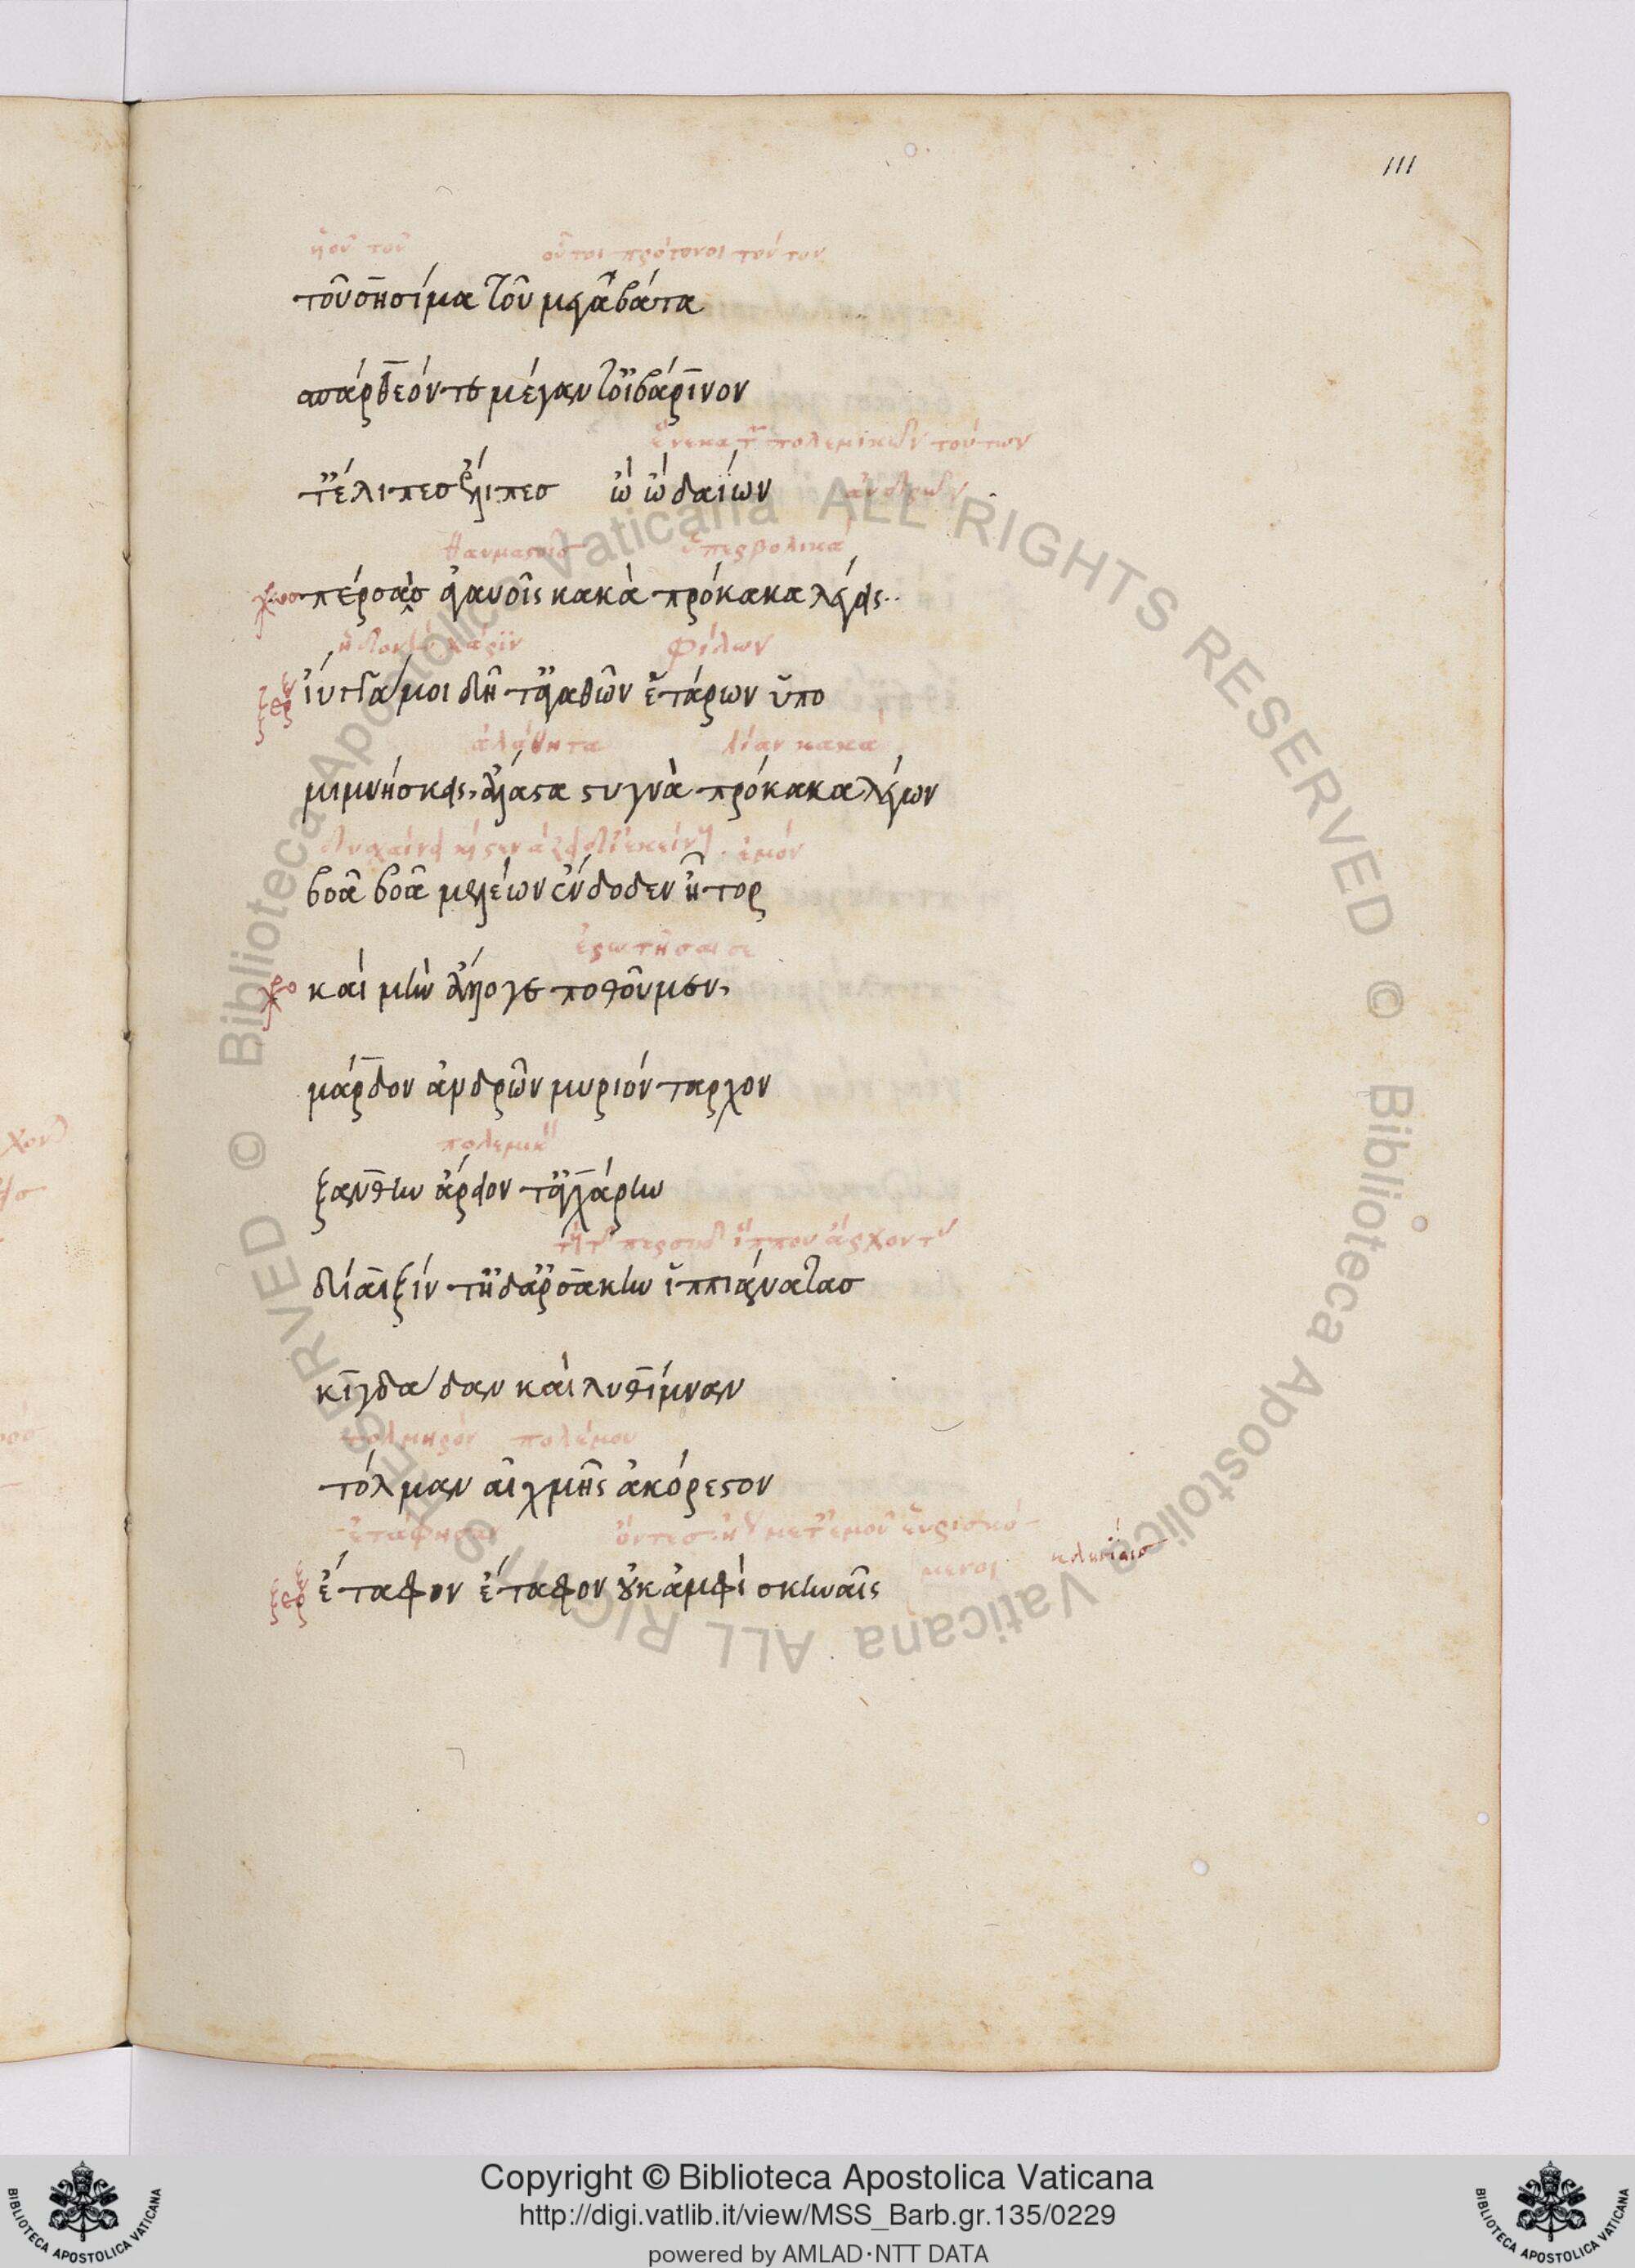 111
ἤουν τοῦ οὗτοι πρόγονοι τούτου
τοῦ σησίμα τοῦ μεγαβάτα
πάρθεόν τε μέγαν τ' οἰβάρινον
ἕνεκα τῶν πολεμικῶν τούτων
τ' ἔλιπες ἔλιπες ὢ ὢ δαΐων ἀνδρῶν
θαυμαστοῖς ὑπερβολικά
χορὸς πέρσαις ἀγαυοῖς κακὰ πρόκακα λέγεις
φίλων
ξέρ ἴυγγά μοι δῆτ' ἀγαθῶν ἑτάρων ὑπο
ἀλάθητα λίαν κακά
μιμνήσκεις, ἄλαστα στυγνὰ πρόκακα λέγων
ἐμόν
βοᾷ βοᾷ μελέων ἔνδοθεν ἦτορ
ἐρωτῆσαί σε
χο καὶ μὴν ἄλλο γε ποθοῦμεν,
μάρδον ἀνδρῶν μυριόνταρχον
πολεμικὸν
ξανθὴν ἄρειον τ' ἀγχάρην
τῶν περσῶν ἵππου ἄρχοντας
δίαιξίν τ' ἠδ' ἀρσάκην ἱππιάνακτας
κιγδαδαν καὶ λυθίμναν
τολμηρὸν πολέμου
τόλμαν αἰχμῆς ἀκόρεστον
ἐτάφησαν ὄντες ἢ μετ' ἐμοῦ εὑρισκό-
μενοι
ξέρ ἔταφον ἔταφον οὐκ ἀμφὶ σκηναῖς
© Biblioteca Apostolica Vaticana ALL RIGHTS RESERVED © Biblioteca Apostolica Vaticana ALL RIGHTS RESERVED
Copyright © Biblioteca Apostolica Vaticana
http://digi.vatlib.it/view/MSS_Barb.gr.135/0229
powered by AMLAD·NTT DATA
BIBLIOTECA APOSTOLICA VATICANA
BIBLIOTECA APOSTOLICA VATICANA